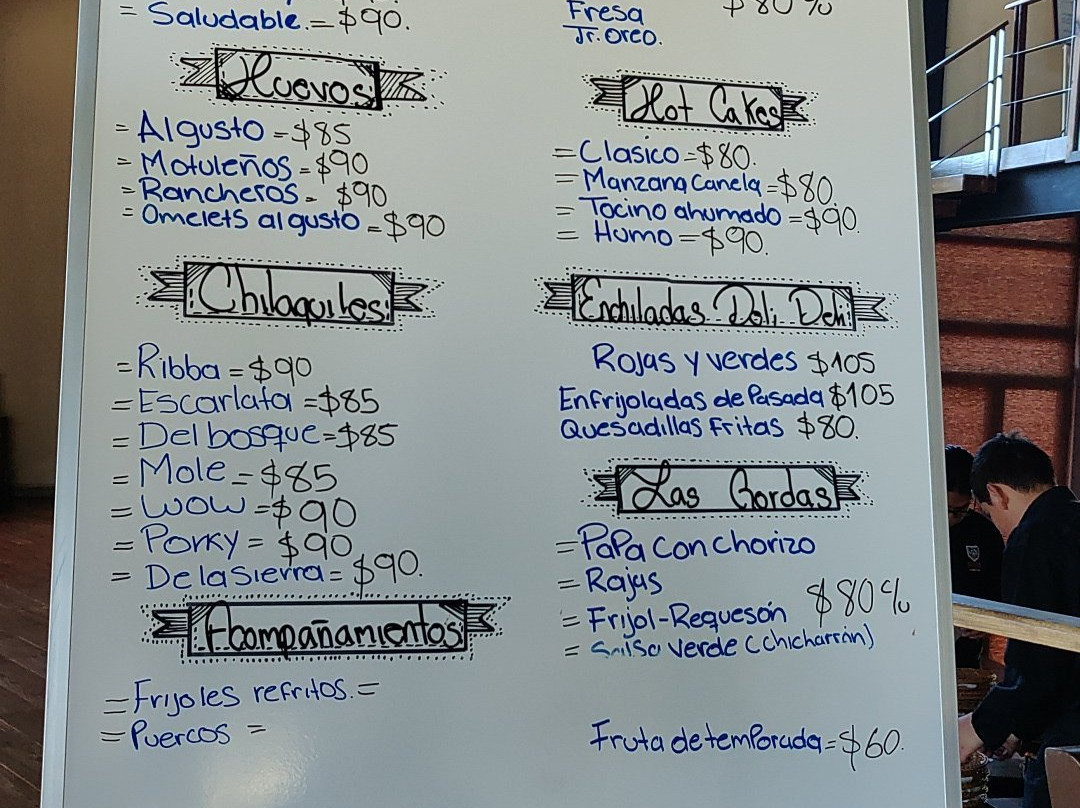 = Saludable.=$90.
Huevos
= Al gusto =$85
= Motuleños =$90
= Rancheros = $90
= Omelets al gusto =$90
Chilaquiles
= Ribba = $90
= Escarlata =$85
= Del bosque =$85
= Mole = $85
= WOW =$90
= Porky = $90
= De la Sierra = $90.
Acompañamientos
= Frijoles refritos. =
= Puercos =
Fresa
Jr. Oreo.
Hot Cakes
= Clasico =$80.
= Manzana Canela =$80.
= Tocino ahumado =$90.
= Humo =$90.
Enchiladas Deli Deli
Rojas y verdes $105
Enfrijoladas de Pasada $105
Quesadillas Fritas $80.
Las Gordas
= Papa con chorizo
= Rajas
= Frijol-Requesón $80 %
= Salsa Verde (chicharrón)
Fruta de temporada =$60.